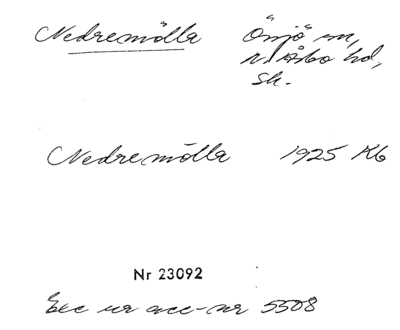 Nedremölla Önjö sn,
N. Åsbo hd,
Sk.
Nedremölla 1925 Kb
Nr 23092
Exc ur acc-nr 5508